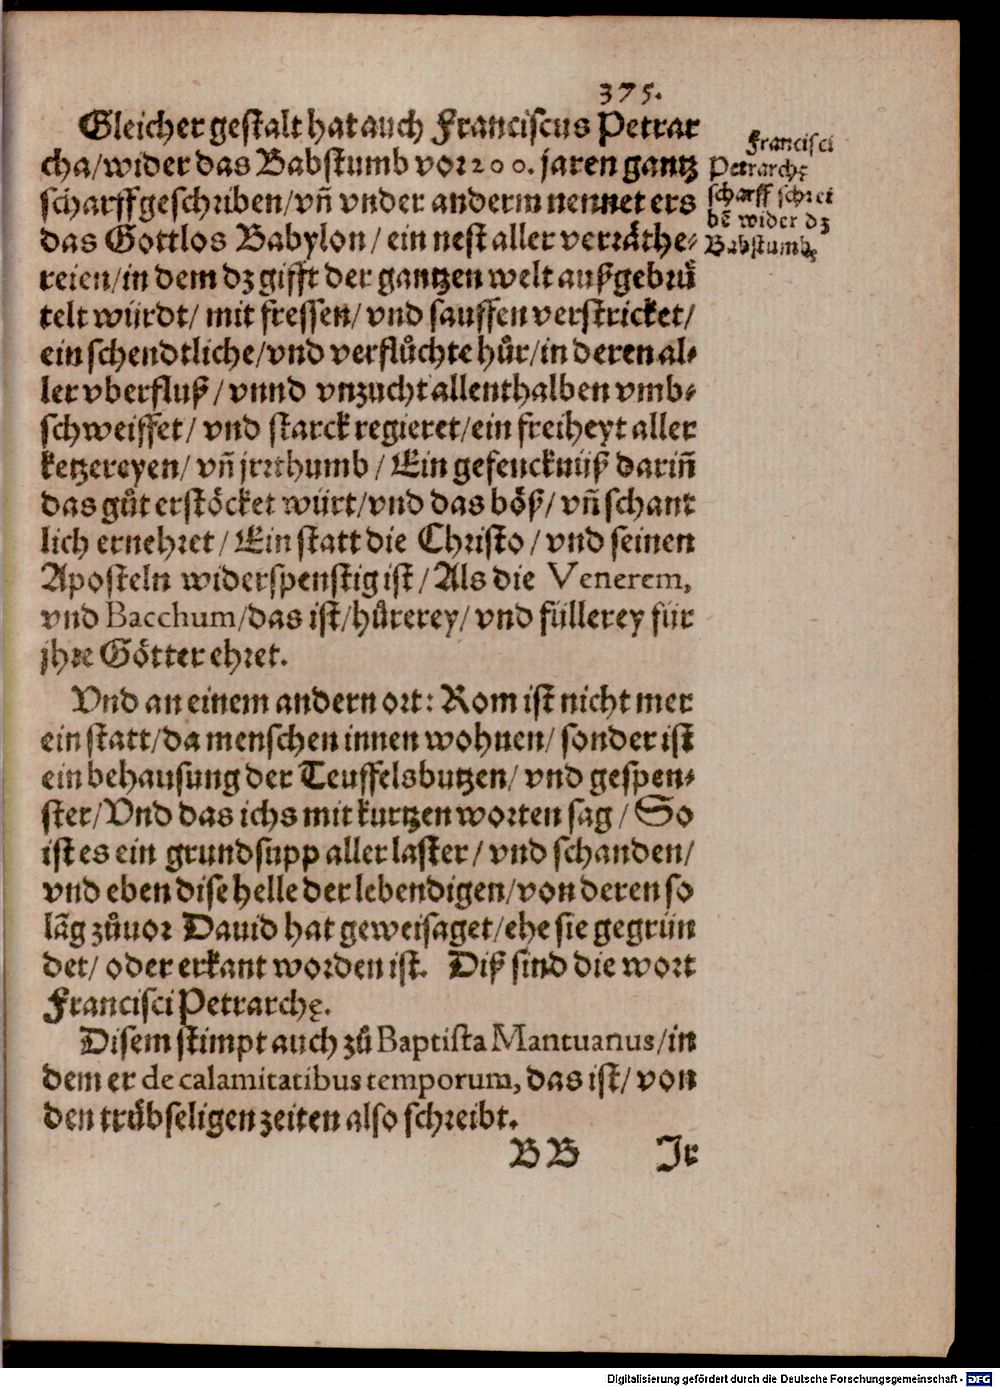 375.
Gleicher gestalt hat auch Franciscus Petrar
cha/wider das Babstumb vor 200. jaren gantz
scharff geschriben/vñ vnder anderm nennet ers
das Gottlos Babylon/ ein nest aller verräthe-
reien/in dem dz gifft der gantzen welt außgebrü
telt würdt/ mit fressen/ vnd sauffen verstricket/
ein schendtliche/vnd verflůchte hůr/in deren al-
ler vberfluß/ vnnd vnzucht allenthalben vmb-
schweiffet/ vnd starck regieret/ein freiheyt aller
ketzereyen/ vñ jrrthumb/ Ein gefencknüß dariñ
das gůt erstöcket würt/vnd das böß/ vñ schant
lich ernehret/ Ein statt die Christo/ vnd seinen
Aposteln widerspenstig ist/ Als die Venerem,
vnd Bacchum/das ist/hůrerey/ vnd füllerey für
jhre Götter ehret.
Vnd an einem andern ort: Rom ist nicht mer
ein statt/da menschen innen wohnen/ sonder ist
ein behausung der Teuffelsbutzen/ vnd gespen-
ster/Vnd das ichs mit kurtzen worten sag/ So
ist es ein grundsupp aller laster/ vnd schanden/
vnd eben dise helle der lebendigen/von deren so
lãg zůuor Dauid hat geweisaget/ehe sie gegrün
det/ oder erkant worden ist. Diß sind die wort
Francisci Petrarchę.
Disem stimpt auch zů Baptista Mantuanus/in
dem er de calamitatibus temporum, das ist/ von
den trůbseligen zeiten also schreibt.
BB Jr
Francisci
Petrarchę
scharff schrei
bẽ wider dz
Babstumb.
Digitalisierung gefördert durch die Deutsche Forschungsgemeinschaft - DFG